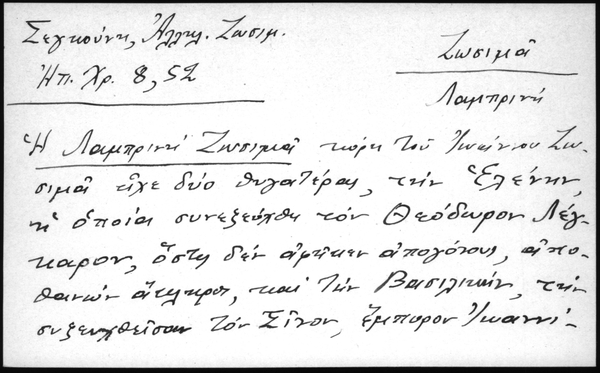 Σεγκούνη, Ἀλληλ. Ζωσιμ.
Ἠπ. Χρ. 8, 52
Ζωσιμᾶ
Λαμπρινή
Ἡ Λαμπρινή Ζωσιμᾶ κόρη τοῦ Ἰωάννου Ζω-
σιμᾶ εἶχε δύο θυγατέρας, τήν Ἑλένην,
ἡ ὁποία συνεζεύχθη τόν Θεόδωρον Λέγ-
καρον, ὅστις δέν ἀφῆκεν ἀπογόνους, ἀπο-
θανών ἄκληρος, καί τήν Βασιλικήν, τήν
συζευχθεῖσαν τόν Ξῖνον, ἔμπορον Ἰωαννί-